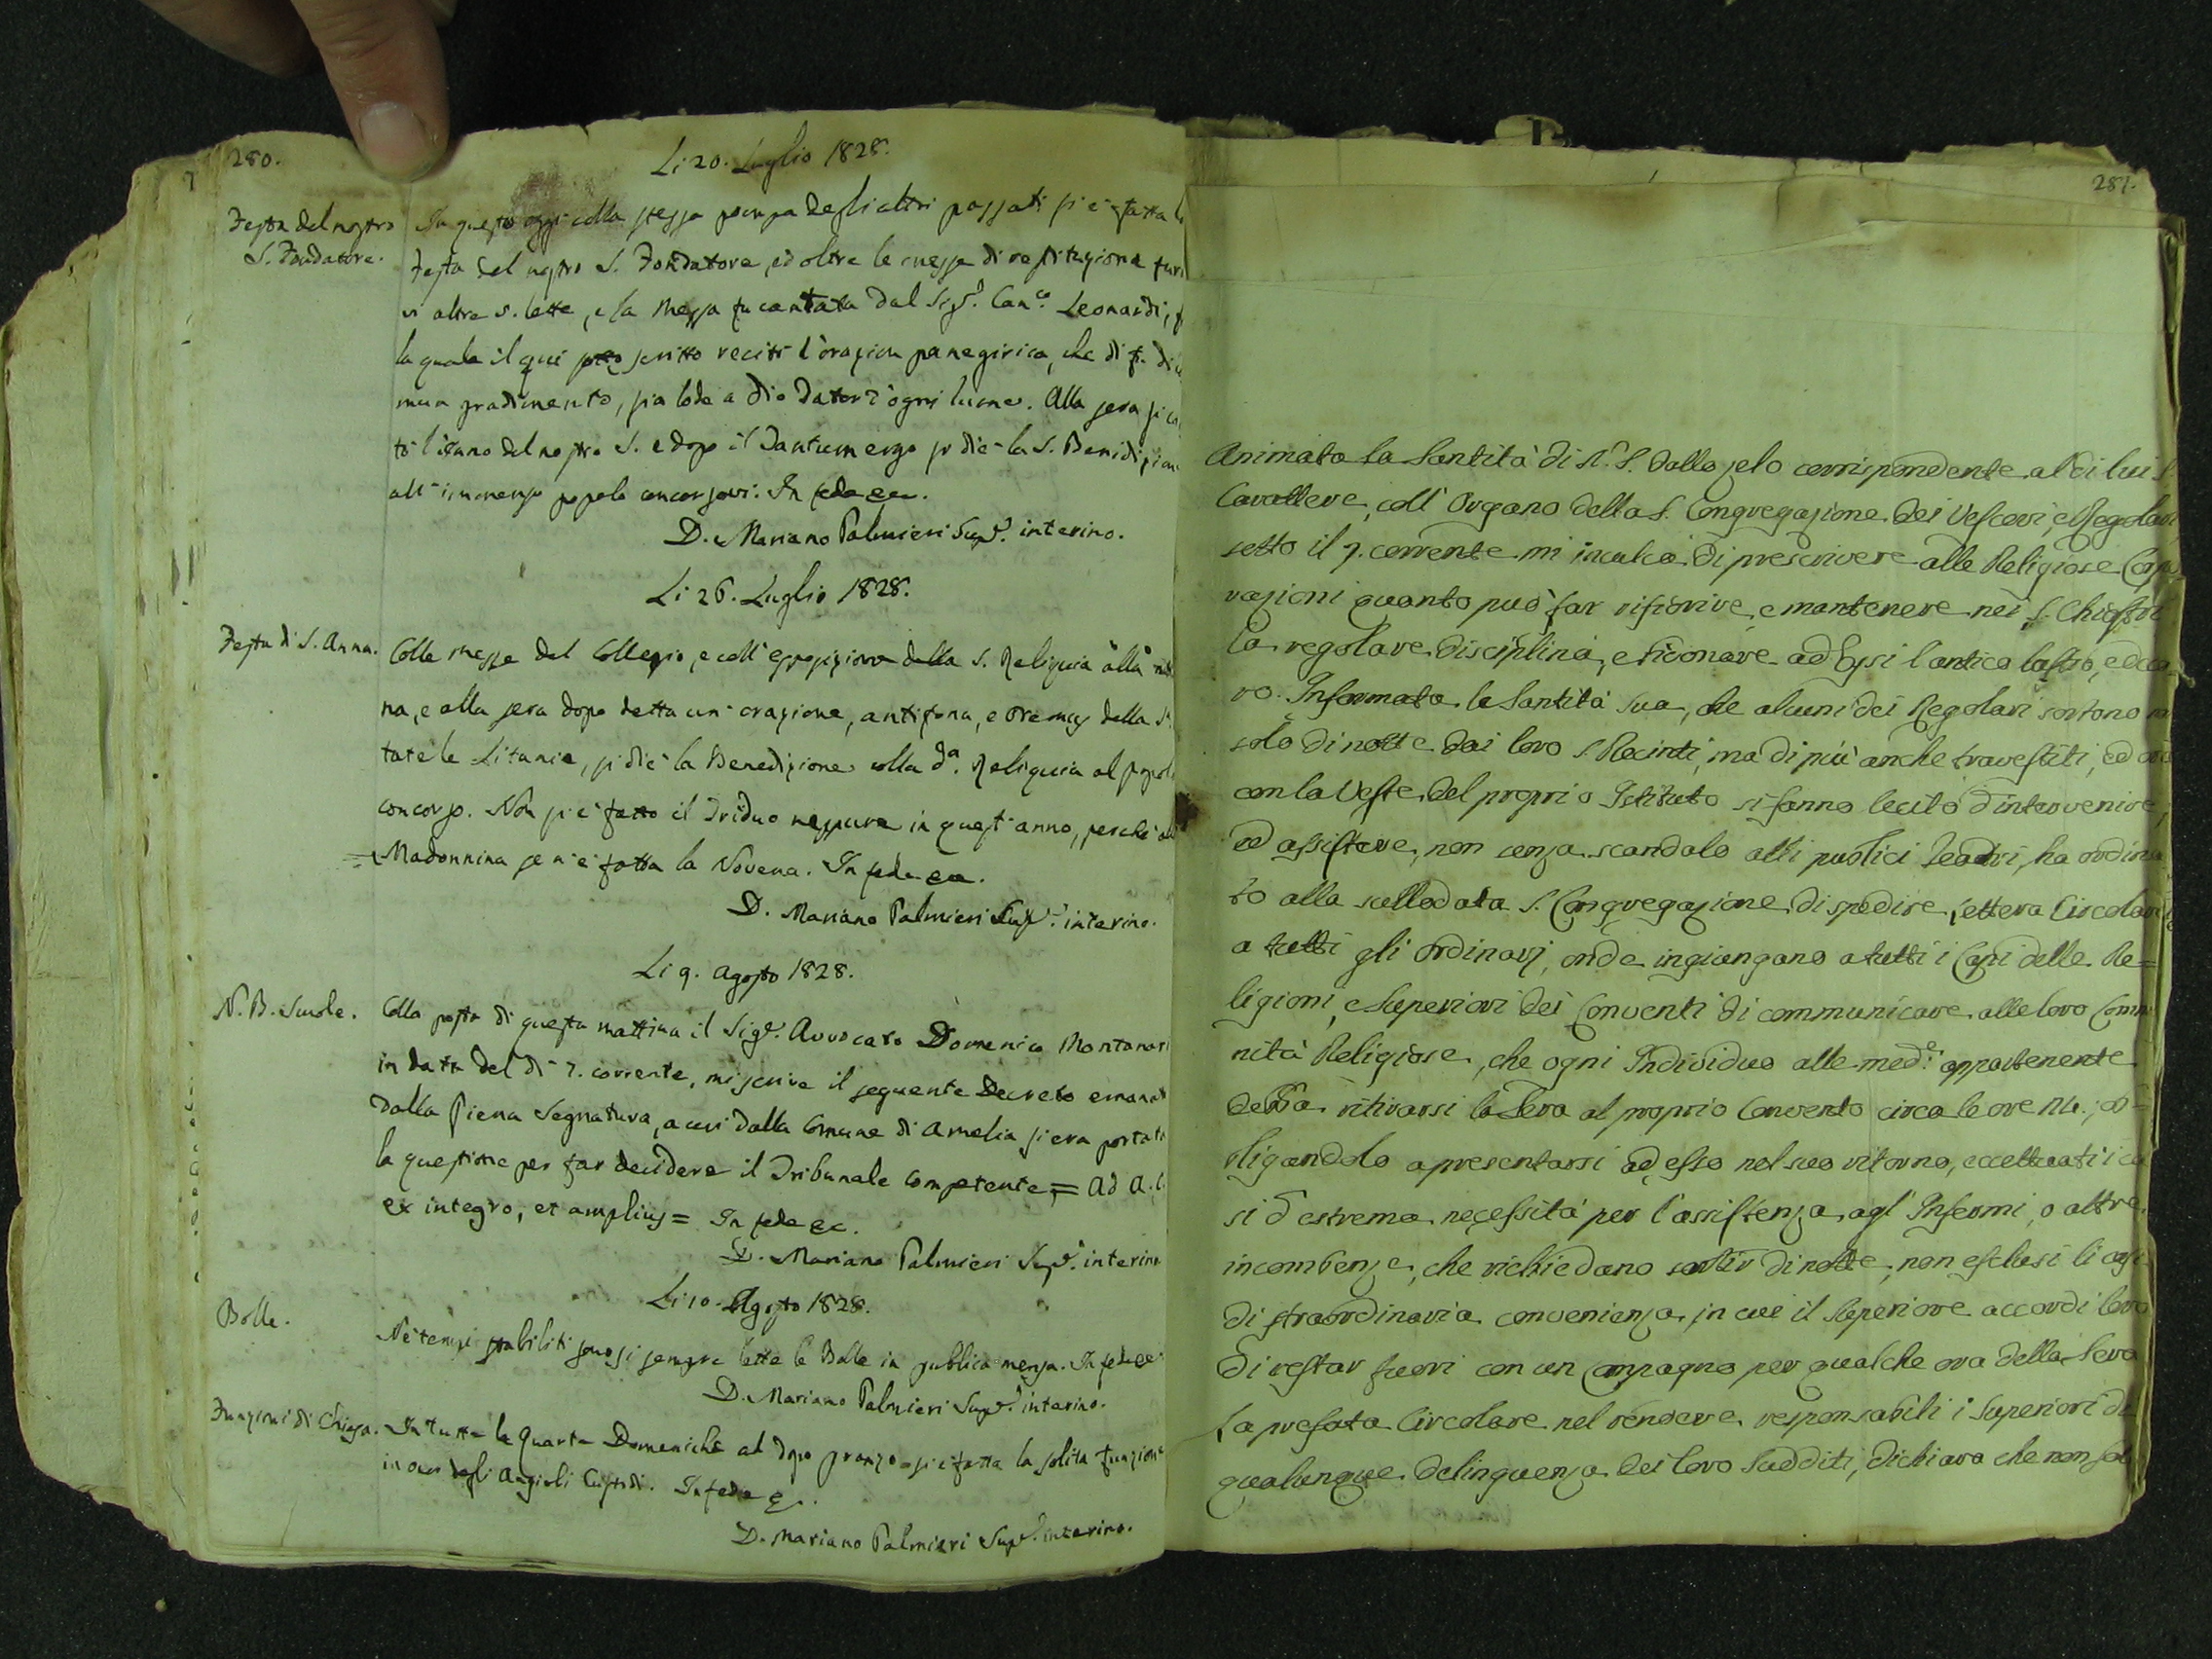 280.
Li 20. Luglio 1828.
Festa del nostro
S. Fondatore.
In questo oggi colla stessa pompa degli altri passati si è fatta la
festa del nostro S. Fondatore, ed oltre le messe di restituzione furo
vi altre 5. lette, e la Messa fu cantata dal Sigr. Canco. Leonardi,
la quale il qui sotto scritto recitò l'orazion panegirica, che di
mun gradimento, sia lode a Dio Dator d'ogni lume. Alla sera si
tò l'inno del nostro S. e dopo il Tantum ergo si diè la S. Benedizione
all'immenso popolo concorsovi. In fede ec.
D. Mariano Palmieri Supr. interino.
Li 26. Luglio 1828.
Festa di S. Anna.
Colle messe del Collegio, e coll'esposizione della S. Reliquia alla
na, e alla sera dopo detta un'orazione, antifona, e Oremus della S.
tate le Litanie, si diè la Benedizione colla da. Reliquia al popolo
concorso. Non si è fatto il Triduo neppure in quest'anno, perchè
Madonnina se n'è fatta la Novena. In fede ec.
D. Mariano Palmieri Supr. interino.
Li 9. Agosto 1828.
N. B. Scuole.
Colla posta di questa mattina il Sigr. Avvocato Domenico Montanari
in data del dì 7. corrente, mi scrive il seguente Decreto emanato
dalla Piena Segnatura, a cui dalla Comune di Amelia si era portata
la questione per far decidere il Tribunale Competente, = Ad A. C.
ex integro, et amplius = In fede ec.
D. Mariano Palmieri Supr. interino
Li 10. Agosto 1828.
Bolle.
Ne' tempi stabiliti sonosi sempre lette le Bolle in publica mensa. In fede ec.
D. Mariano Palmieri Supr. interino.
Funzioni di Chiesa.
In tutte le quarte Domeniche al dopo pranzo si è fatta la solita funzione
in onor degli Angioli Custodi. In fede
D. Mariano Palmieri Supr. interino.
281.
Animata la Santità di N. S. dallo zelo corrispondente al di lui S.
Carattere, coll'Organo della S. Congregazione dei Vescovi, e Regolari
sotto il 7. corrente mi inculca di prescrivere alle Religiose Corpo
razioni quanto può far rifiorire, e mantenere nei S. Chiostri
la regolare disciplina, e ridonare ad Essi l'antico lustro, e deco
ro. Informata la Santità Sua, che alcuni dei Regolari sortono
solo di notte dai loro S. Recinti, ma di più anche travestiti, ed
con la Veste del proprio Istituto si fanno lecito d'intervenire,
ed assistere, non senza scandalo alli publici Teatri, ha ordina
to alla sullodata S. Congregazione di spedire lettera Circolare
a tutti gli Ordinarj, onde ingiungano a tutti i Capi delle Re=
ligioni, e Superiori dei Conventi di communicare alle loro Commu
nità Religiose, che ogni Individuo alle mede. appartenente
debba ritirarsi la Sera al proprio Convento circa le ore 24., ob=
bligandolo a presentarsi ad esso nel suo ritorno, eccettuati i ca
si d'estrema necessità per l'assistenza agl'Infermi, o altre
incombenze, che richiedano sortir di notte, non esclusi li casi
di straordinaria convenienza in cui il Superiore accordi loro
di restar fuori con un Compagno per qualche ora della Sera
La prefata Circolare nel rendere responsabili i Superiori di
qualunque delinquenza dei loro Sudditi, dichiara che non sol